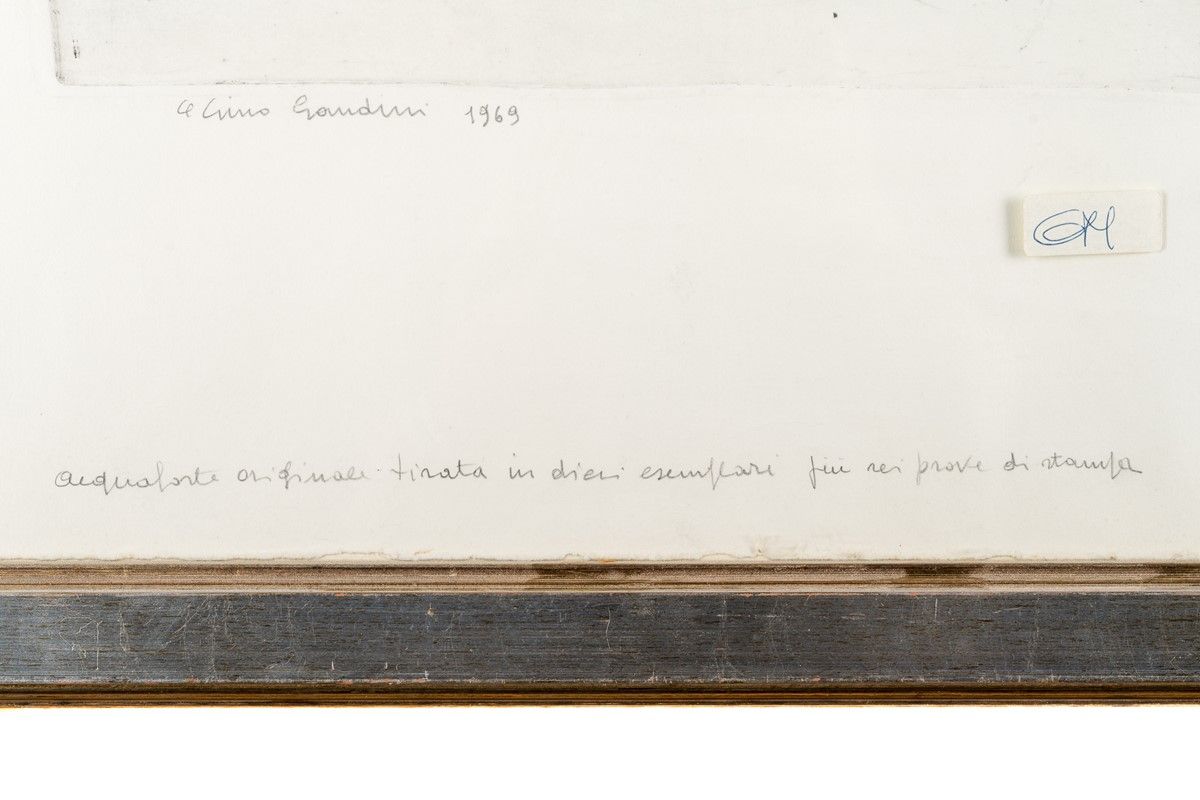 a Gino Gandini 1969
GM
acquaforte originale tirata in dieci esemplari più sei prove di stampa